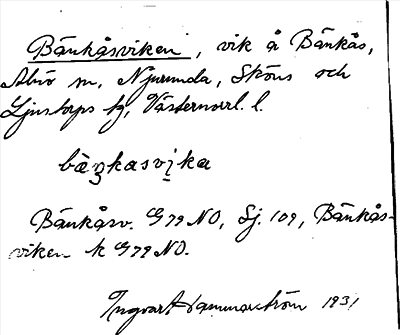 Bänkåsviken, vik å Bänkås,
Alnö m, Njurunda, Sköns och
Ljustorps tg, Västernorrl. l.
bäŋkasvika
Bänkåsv. G79 NO, Sj. 109, Bänkås-
viken k G79 NO.
Ingvar Hammarström 1931